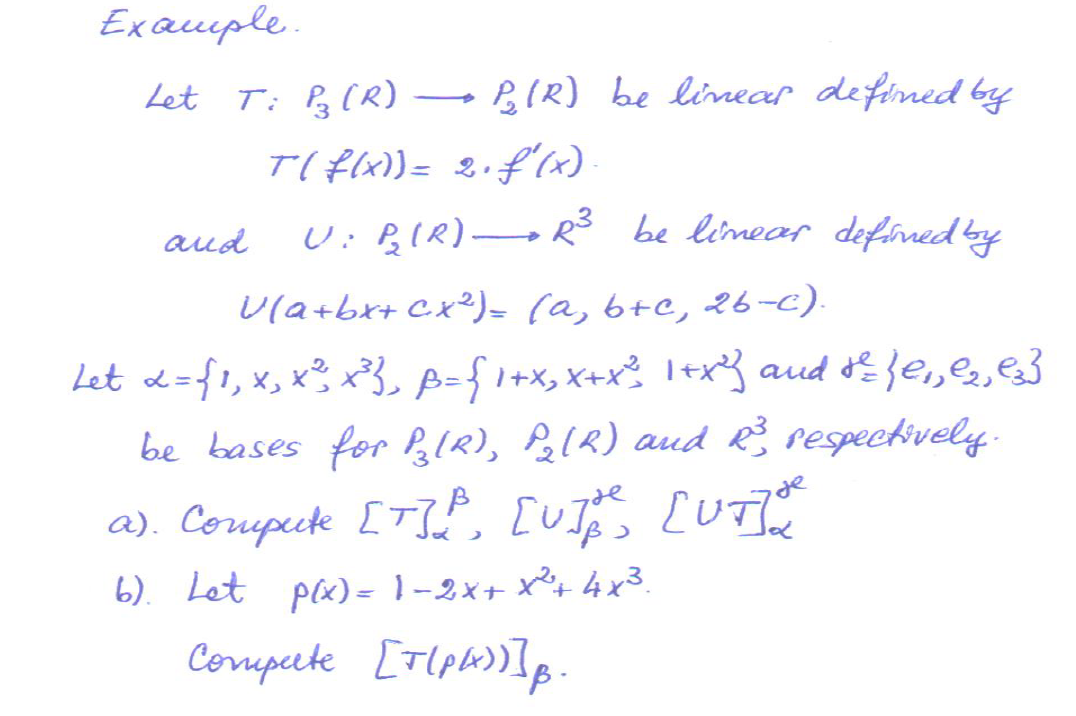 Example.
Let T: P₃(R) ⟶ P₂(R) be linear defined by
T(f(x)) = 2·f'(x).
and U: P₂(R) ⟶ R³ be linear defined by
U(a+bx+cx²) = (a, b+c, 2b-c).
Let α={1, x, x², x³}, β={1+x, x+x², 1+x²} and γ={e₁, e₂, e₃}
be bases for P₃(R), P₂(R) and R³, respectively.
a). Compute [T]_α^β, [U]_β^γ, [UT]_α^γ
b). Let p(x) = 1-2x+x²+4x³.
Compute [T(p(x))]_β.